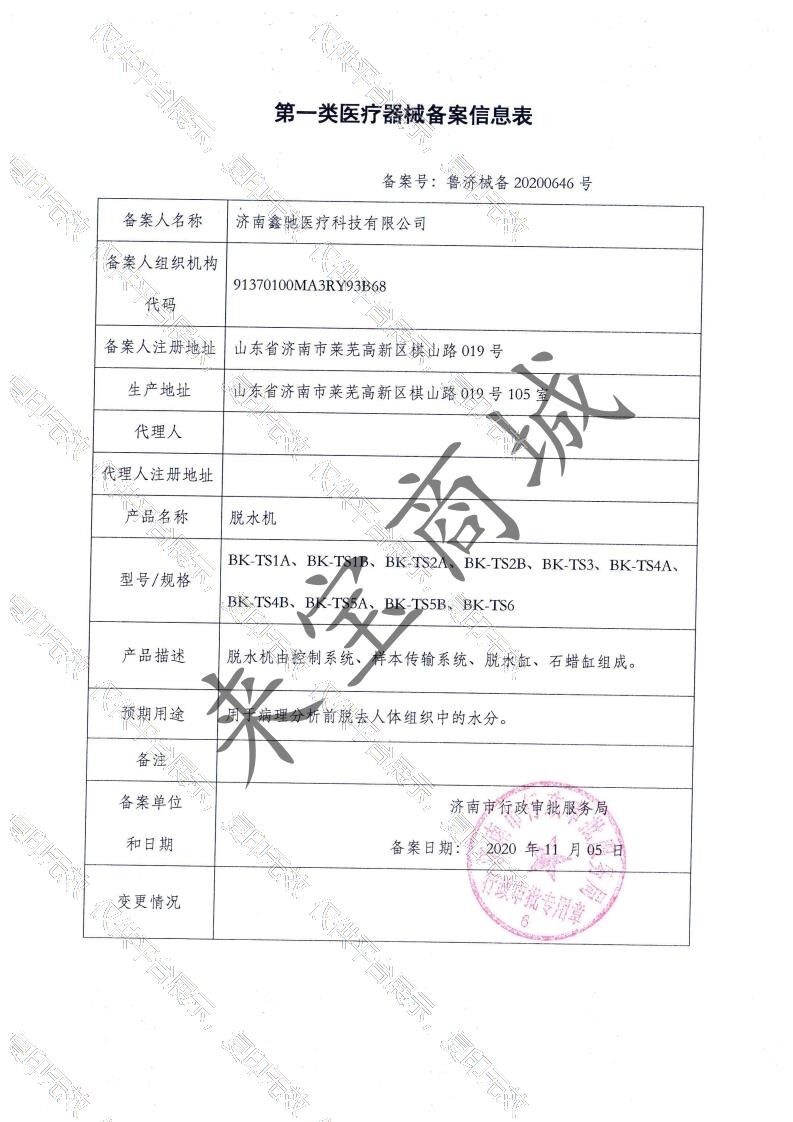 第一类医疗器械备案信息表
备案号：鲁济械备 20200646 号
备案人名称
济南鑫驰医疗科技有限公司
备案人组织机构
代码
91370100MA3RY93B68
备案人注册地址
山东省济南市莱芜高新区棋山路 019 号
生产地址
山东省济南市莱芜高新区棋山路 019 号 105 室
代理人
代理人注册地址
产品名称
脱水机
型号/规格
BK-TS1A、BK-TS1B、BK-TS2A、BK-TS2B、BK-TS3、BK-TS4A、
BK-TS4B、BK-TS5A、BK-TS5B、BK-TS6
产品描述
脱水机由控制系统、样本传输系统、脱水缸、石蜡缸组成。
预期用途
用于病理分析前脱去人体组织中的水分。
备注
备案单位
和日期
济南市行政审批服务局
备案日期： 2020 年 11 月 05 日
变更情况
济南市行政审批服务局
行政审批专用章
6
来宝商城
仅供平台展示，
复印无效